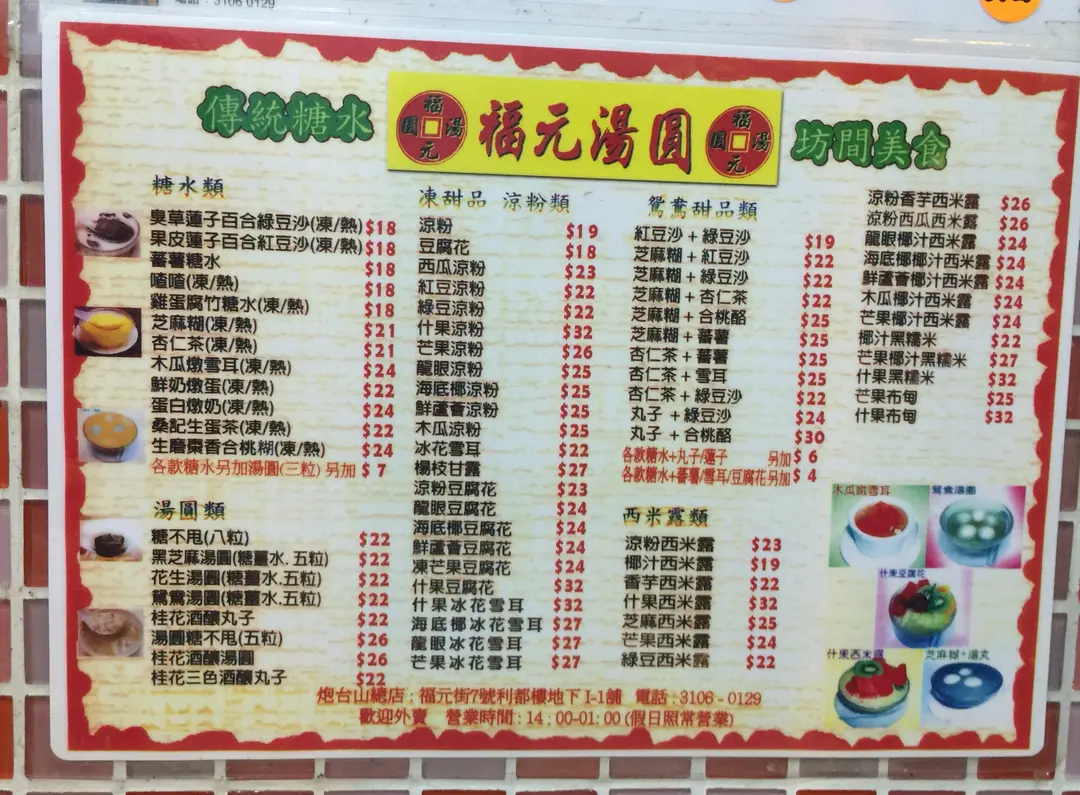 電話：3106 0129
傳統糖水
福湯元圓
福元湯圓
福湯元圓
坊間美食
糖水類
臭草蓮子百合綠豆沙(凍/熱) $18
果皮蓮子百合紅豆沙(凍/熱) $18
蕃薯糖水 $18
喳喳(凍/熱) $18
雞蛋腐竹糖水(凍/熱) $18
芝麻糊(凍/熱) $21
杏仁茶(凍/熱) $21
木瓜燉雪耳(凍/熱) $24
鮮奶燉蛋(凍/熱) $22
蛋白燉奶(凍/熱) $24
桑記生蛋茶(凍/熱) $22
生磨棗香合桃糊(凍/熱) $24
各款糖水另加湯圓(三粒) 另加 $7
湯圓類
糖不甩(八粒) $22
黑芝麻湯圓(糖薑水.五粒) $22
花生湯圓(糖薑水.五粒) $22
鴛鴦湯圓(糖薑水.五粒) $22
桂花酒釀丸子 $22
湯圓糖不甩(五粒) $26
桂花酒釀湯圓 $26
桂花三色酒釀丸子 $22
凍甜品 涼粉類
涼粉 $19
豆腐花 $18
西瓜涼粉 $23
紅豆涼粉 $22
綠豆涼粉 $22
什果涼粉 $32
芒果涼粉 $26
龍眼涼粉 $25
海底椰涼粉 $25
鮮蘆薈涼粉 $25
木瓜涼粉 $25
冰花雪耳 $22
楊枝甘露 $27
涼粉豆腐花 $23
龍眼豆腐花 $24
海底椰豆腐花 $24
鮮蘆薈豆腐花 $24
凍芒果豆腐花 $24
什果豆腐花 $32
什果冰花雪耳 $32
海底椰冰花雪耳 $27
龍眼冰花雪耳 $27
芒果冰花雪耳 $27
鴛鴦甜品類
紅豆沙+綠豆沙 $19
芝麻糊+紅豆沙 $22
芝麻糊+綠豆沙 $22
芝麻糊+杏仁茶 $22
芝麻糊+合桃酪 $25
芝麻糊+蕃薯 $25
杏仁茶+蕃薯 $25
杏仁茶+雪耳 $25
杏仁茶+綠豆沙 $22
丸子+綠豆沙 $24
丸子+合桃酪 $30
各款糖水+丸子/蓮子 另加 $6
各款糖水+蕃薯/雪耳/豆腐花另加 $4
西米露類
涼粉西米露 $23
椰汁西米露 $19
香芋西米露 $22
什果西米露 $32
芝麻西米露 $25
芒果西米露 $24
綠豆西米露 $22
涼粉香芋西米露 $26
涼粉西瓜西米露 $26
龍眼椰汁西米露 $24
海底椰椰汁西米露 $24
鮮蘆薈椰汁西米露 $24
木瓜椰汁西米露 $24
芒果椰汁西米露 $24
椰汁黑糯米 $22
芒果椰汁黑糯米 $27
什果黑糯米 $32
芒果布甸 $25
什果布甸 $32
木瓜燉雪耳
鴛鴦湯圓
什果豆腐花
什果西米露
芝麻糊+湯丸
炮台山總店：福元街7號利都樓地下I-1舖 電話：3106-0129
歡迎外賣 營業時間：14：00-01：00(假日照常營業)